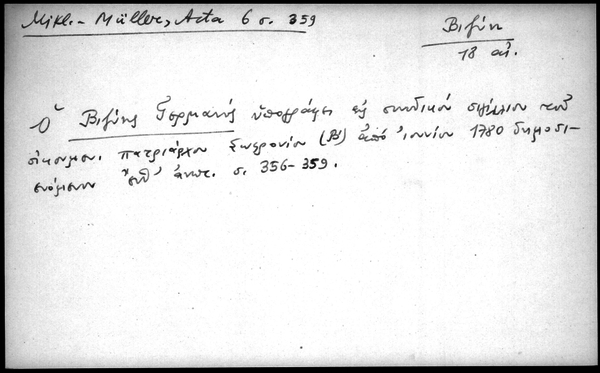 Mikl.- Müller, Acta 6 σ. 359
Βιζύη
18 αἰ.
Ὁ Βιζύης Γερμανός ὑπογράφει εἰς συνοδικόν σιγίλλιον τοῦ
οἰκουμεν. πατριάρχου Σωφρονίου (Β´) ἀπό Ἰουνίου 1780 δημοσι-
ευόμενον ἀνωτ. σ. 356-359.